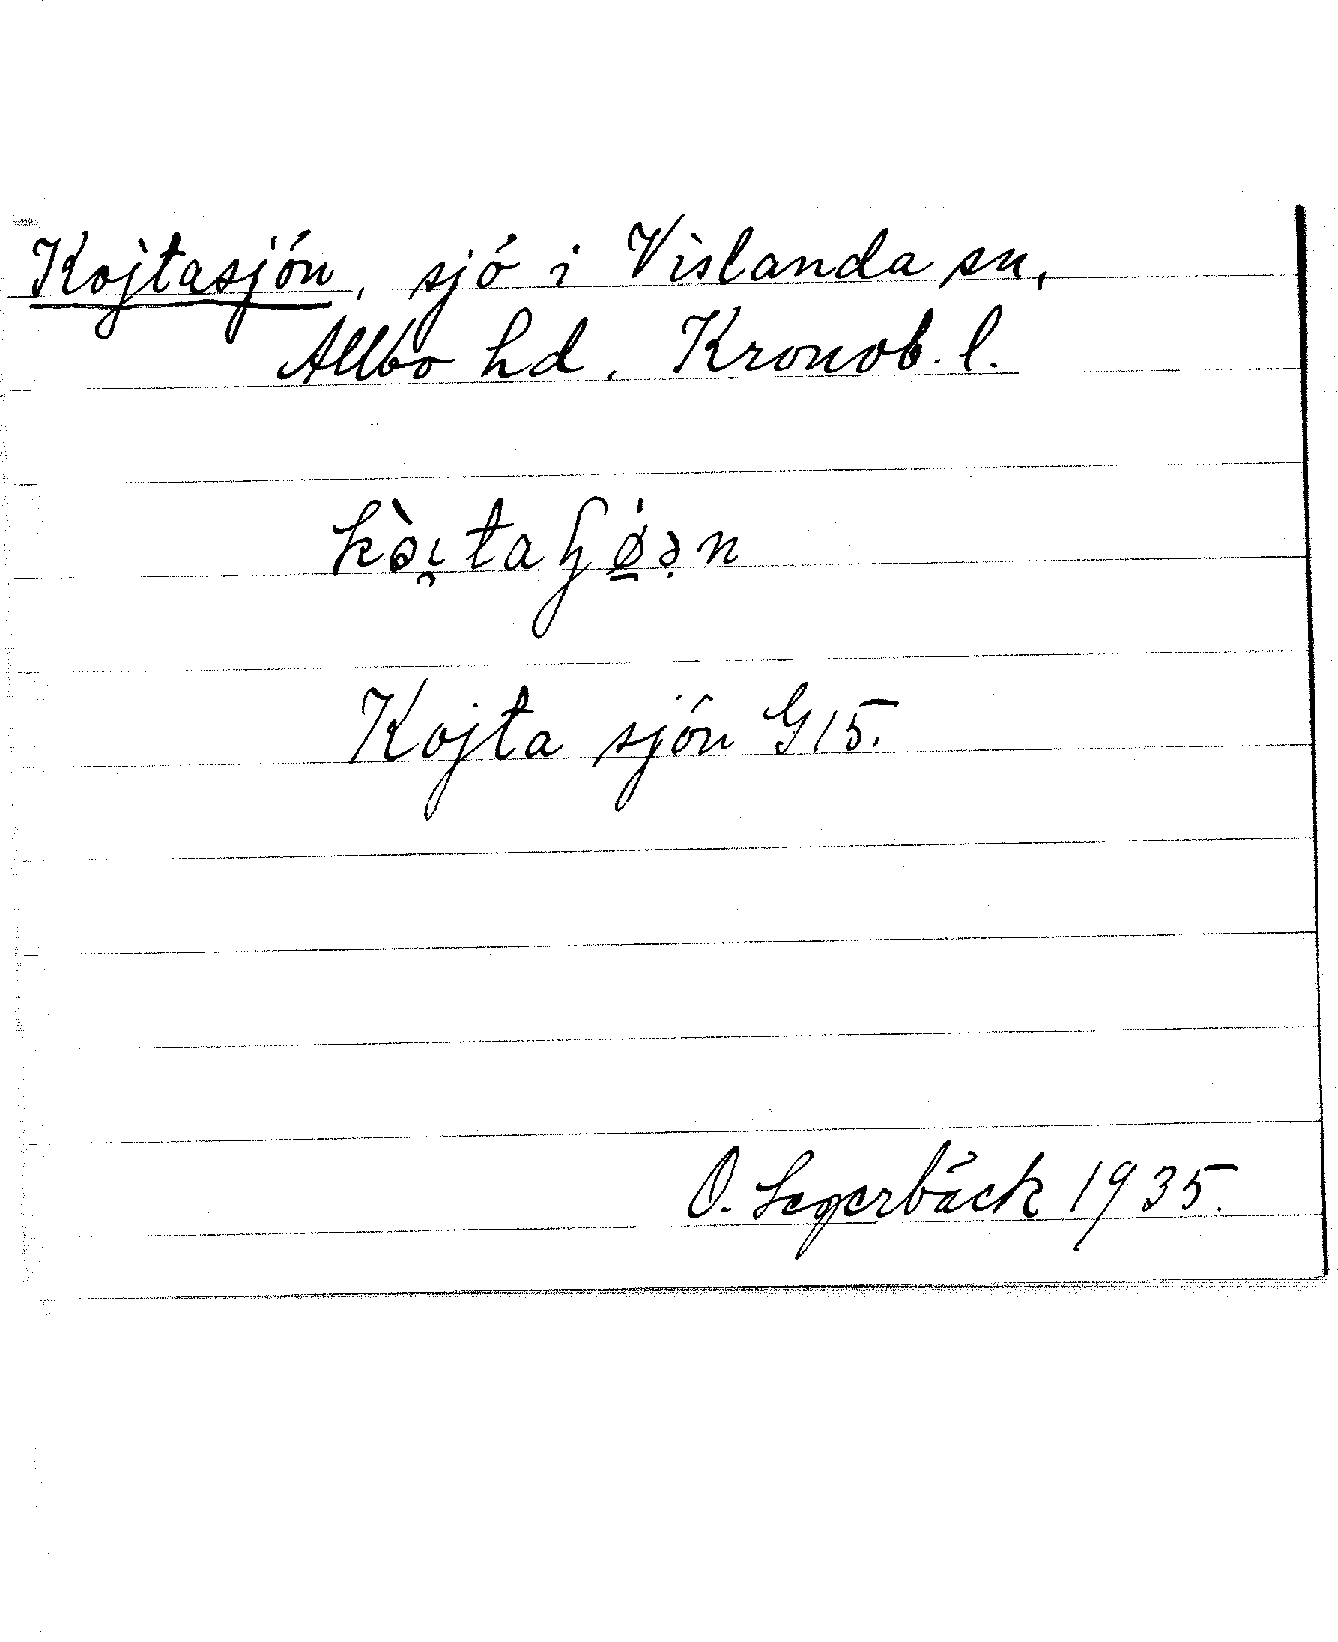 Kojtasjön, sjö i Vislanda sn,
Allbo hd. Kronob. l.
Kojta sjön G15.
O. Segerbäck 1935.